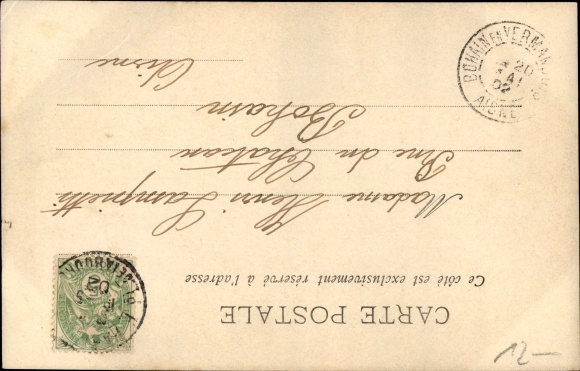 CARTE POSTALE
Ce côté est exclusivement réservé à l'adresse
Madame Henri
Rue du Château
Bohain
Aisne
BOHAIN EN VERMANDOIS
20
MAI
02
AISNE
02
12—